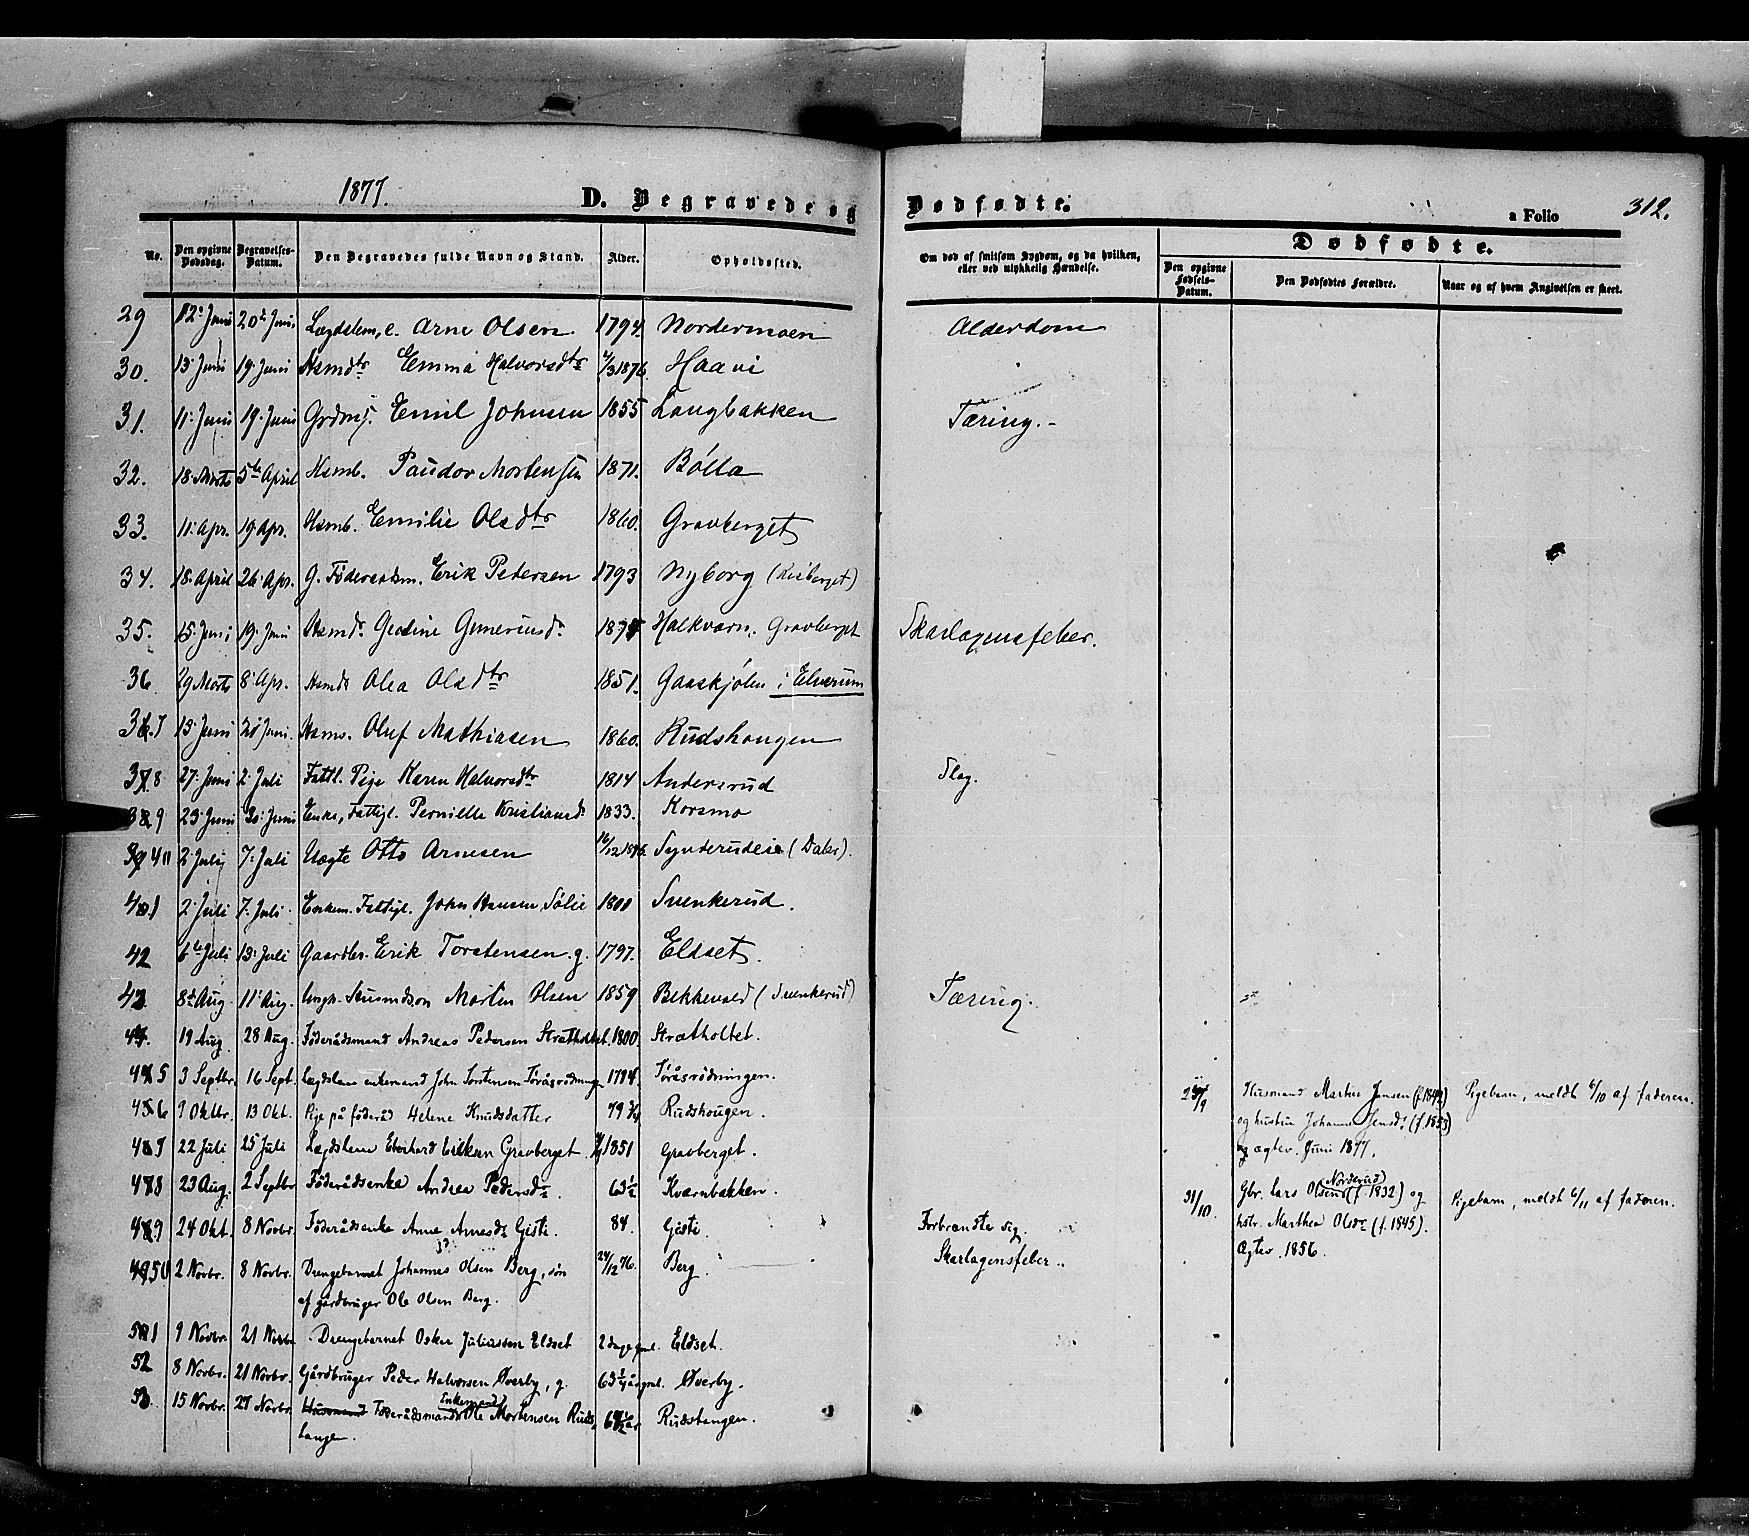 1877.
D. Begravede og Dødfødte.
a Folio 312.
No. Den opgivne Dødsdag. Begravelses-Datum. Den Begravedes fulde Navn og Stand. Alder. Opholdssted. Om død af smitsom Sygdom, og da hvilken, eller ved ulykkelig Hændelse.
Dødfødte.
Den opgivne Fødsels-Datum. Den Dødfødtes Forældre. Naar og af hvem Angivelsen er skeet.
29 12' Juni 20de Juni Lægdslem, e. Arne Olsen 1794. Nordermoen Alderdom
30. 13' Juni 19' Juni Hsmdtr Emma Halvorsdtr 1876. Haavi
31. 11' Juni 19' Juni Grdmsj. Emil Johnsen 1855 Langbakken Tæring.-
32. 18. Marts 5te April Hsmb. Paudor Mortensen 1871. Bölla
33. 11. Apr. 19. Apr. Hsmb. Emilie Olsdtr 1860. Gravberget
34. 18. April 26. Apr. G. Föderaadsm. Erik Petersen 1793 Nyborg (Risberget)
35. 15. Juni 19. Juni Hsmdr Guneriusdr Halkværn. Gravberget Skarlagensfeber.
36 29 Marts 8' Apr. Hsmds Olea Olsdtr 1851. Gaaskjölen i Elverum
37 13' Juni Juni. Hsms. Oluf Mathiasen 1860. Rudshaugen
38 27. Juni 2. Juli Fattl. Pige Karen Halvorsdtr 1814 Andersrud Slag.
39 23. Juni 30. Juni Enke, Fattigl. Pernille Kristiansdr 1833. Korsmo
40 2' Juli 7. Juli Uægte Otto Arnesen 16/12 1876. Synderudeie (Daler).
41 2' Juli 7. Juli Enkem. Fattigl. John Hansen Sölie 1800 Svenkerud.
42 6te Juli 13' Juli Gaardbr. Erik Torstensen. g. 1797. Eldset.
43 8de Aug. 11' Aug. Ungk. Husmdsøn Martin Olsen 1859 Bekkevold (Svenkerud) Tæring.
44. 19 Aug. 28 Aug. Föderådsmand Andreas Pedersen Strætholtet. 1800 Strætholtet.
45 3 Septbr. 16 Sept. Lægdslem enkemand John Torstensen Töråsrödningen 1794. Töråsrödningen.
46 7 Oktbr. 13 Okt. Pige på föderåd Helene Knudsdatter 79 3/4 Rudshougen.
47 22 Juli 25 Juli Lægdslem Eberhard Eriksen Gravberget 1851 Gravberget.
48 23 Aug. 2 Septbr. Föderådsenke Andrea Pedersdr. 63 1/2 Kværnbakken.
49 24 Okt. 8 Novbr. Föderådsenke Anne Arnesdr Gisti. 84. Gisti. Forbrændte sig.
50 2 Novbr. 8 Novbr. Drengebarnet Johannes Olsen Berg, sön 24/12 76. Berg. Skarlagensfeber.
af gårdbruger Ole Olsen Berg.
51 9 Novbr. 21 Novbr. Drengebarnet Oskar Juliussen Eldset 2 dage gml. Eldset.
52 8 Novbr. 21 Novbr. Gårdbruger Peder Halvorsen Øverby, g. 63 1/2 år gml. Øverby.
Enkemand
53. 15 Novbr. 27 Novbr. Husmand Föderådsmand Ole Mortensen Rudstangen. Rudstangen.
Husmand Martin Jensen (f. 1842) Pigebarn, meldt 6/10 af faderen.
og hustru Johanne Jensdr. (f. 1853)
ægtev. Juni 1877.
31/10. Gbr. Lars Olsen (Norderud) (f. 1832) og Pigebarn, meldt 6/11 af faderen.
hstr. Marthea Olsdr (f. 1845).
Ægtev. 1856.